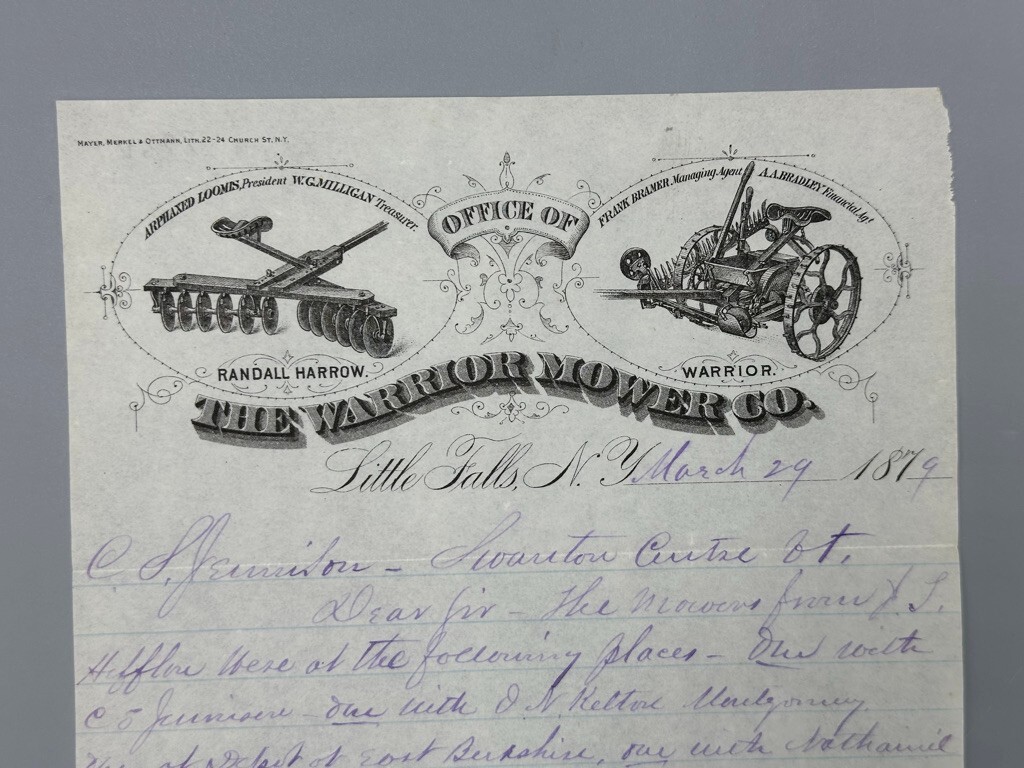 MAYER, MERKEL & OTTMANN, LITH. 22-24 CHURCH ST. N.Y.
ARPHAXED LOOMIS, President W.G. MILLIGAN Treasurer.
OFFICE OF
FRANK BRAMER Managing Agent A.A. BRADLEY Financial Agt
RANDALL HARROW.
WARRIOR.
THE WARRIOR MOWER CO.
Little Falls, N.Y. March 29 1879
C. S. Jennison - Swanton Centre Vt.
Dear Sir - The Mowers from J. S.
were at the following places - One with
Jennison - One with N. Kelton Montgomery
One at Depot at East Berkshire, one with Nathaniel